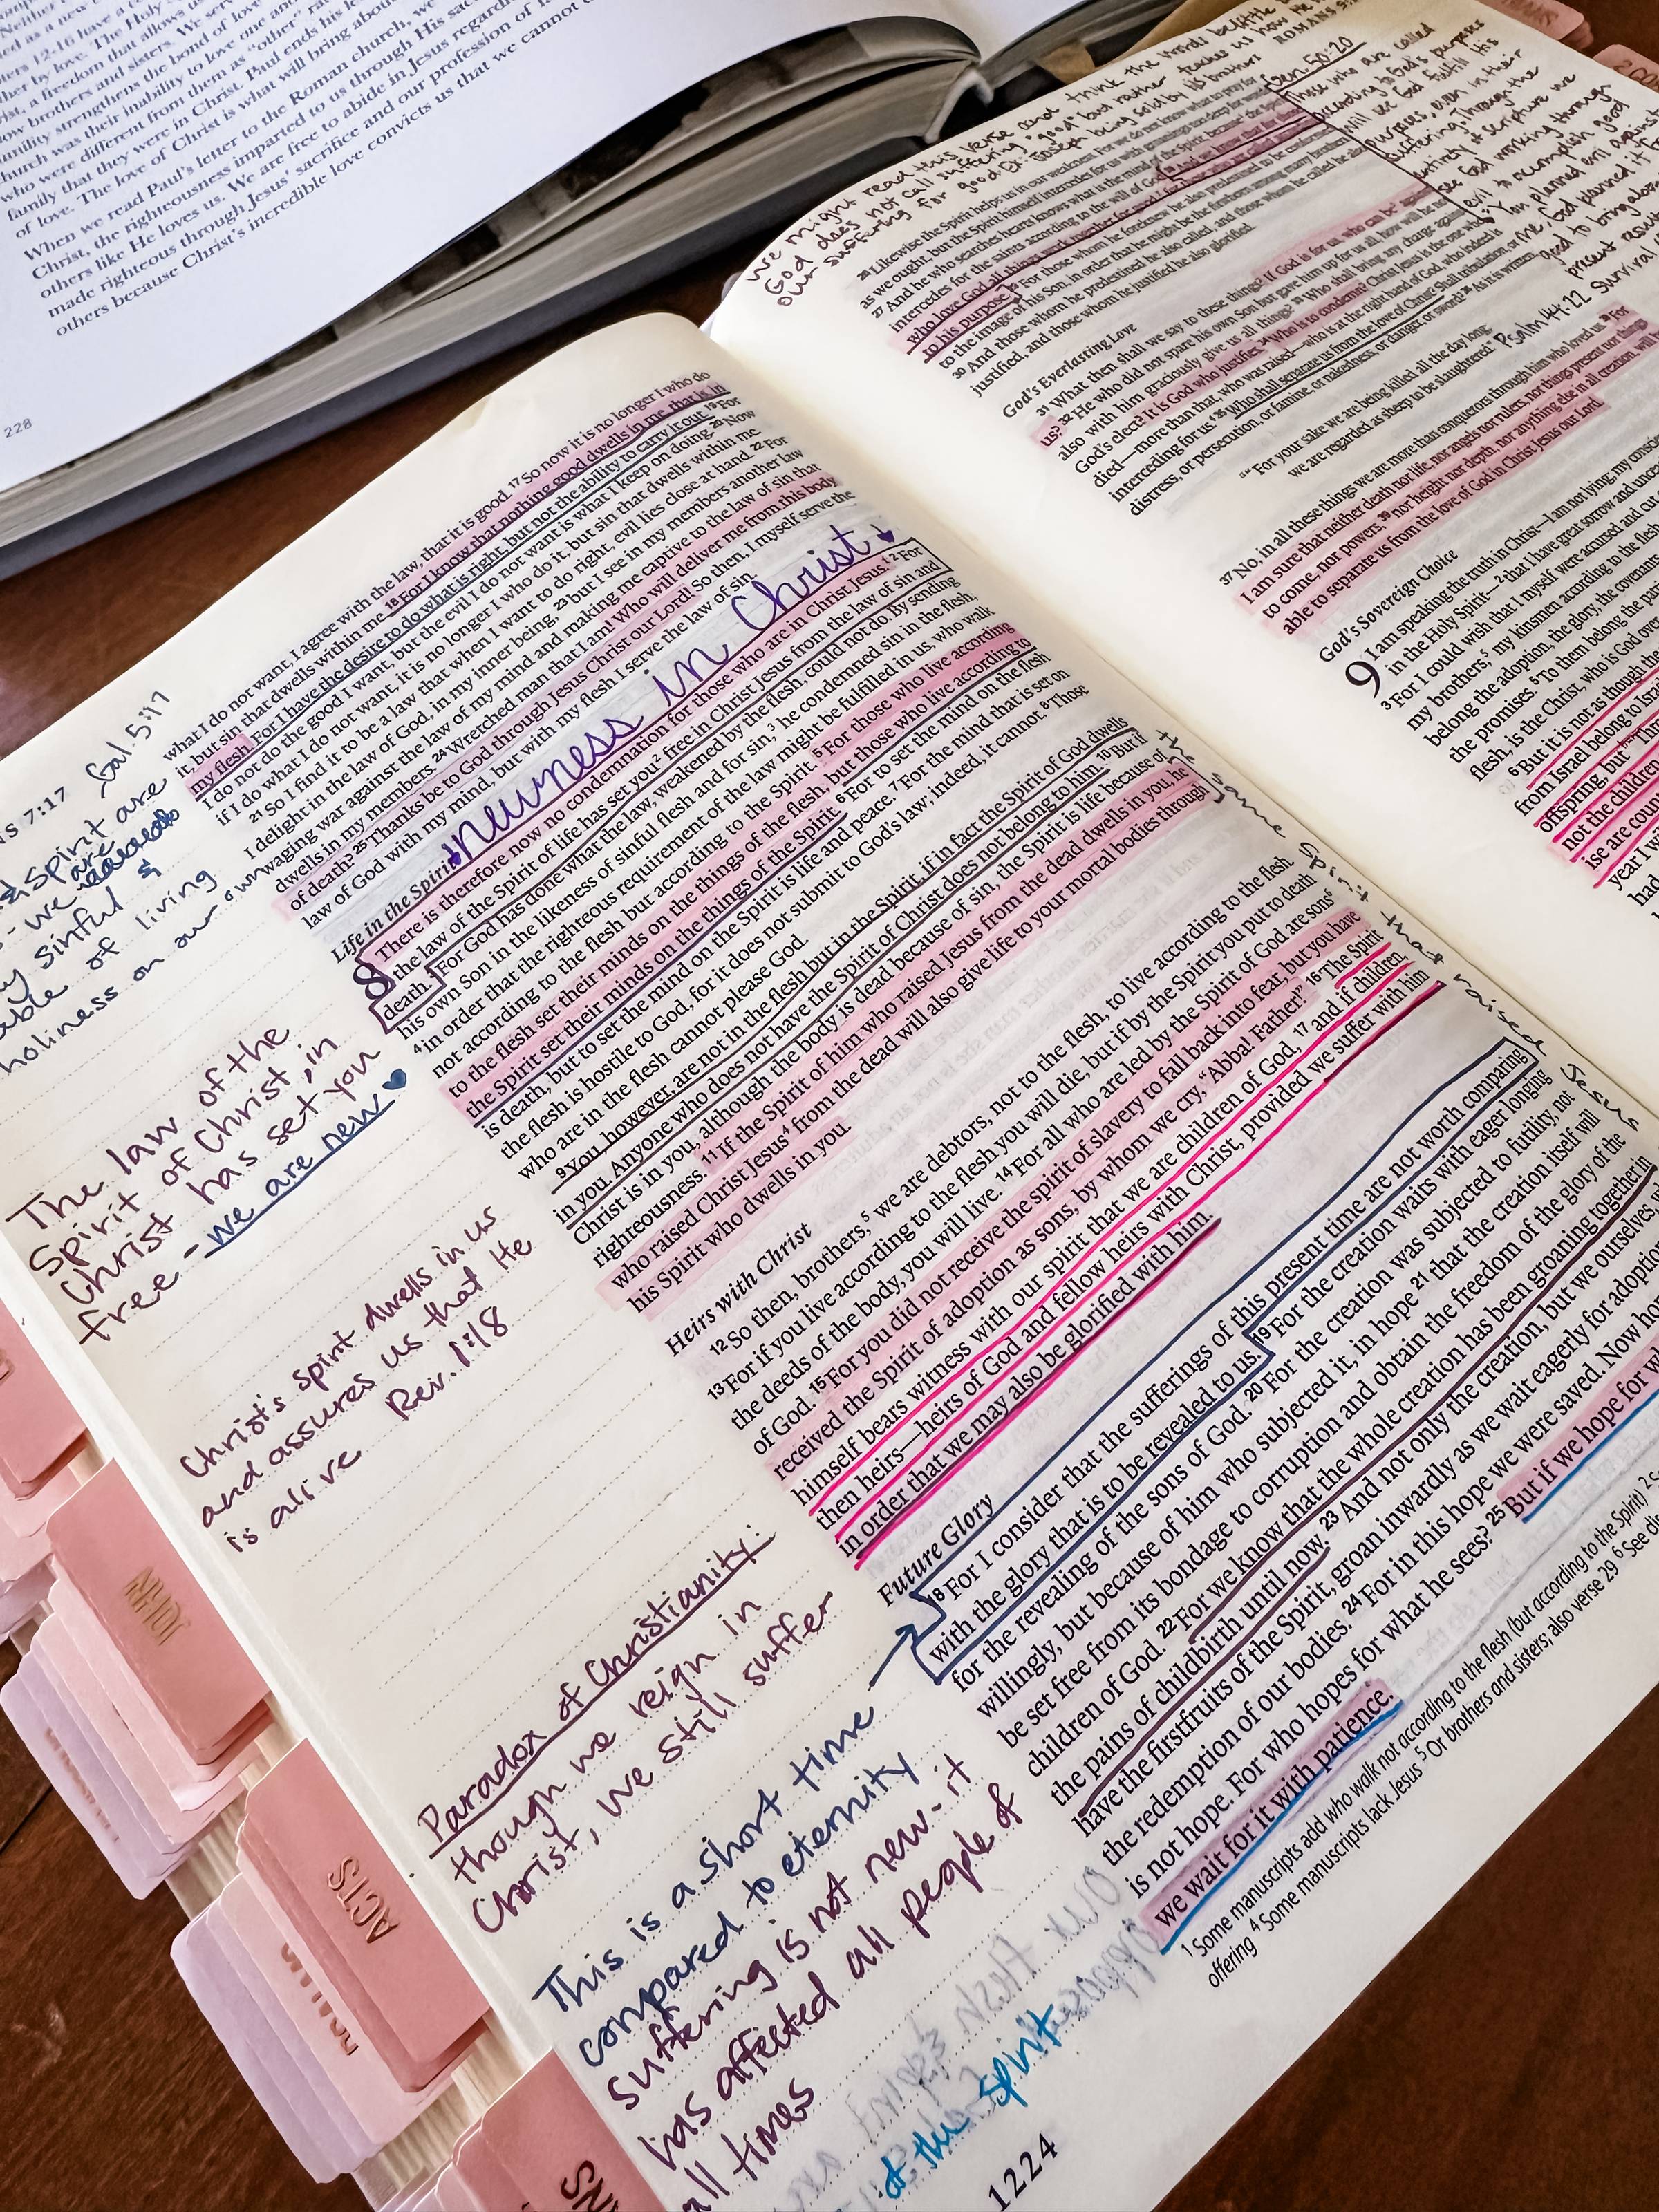 ters 12-16 have a
her by love. The Holy
ist, a freedom that allows us
ow brothers and sisters. We serve
umility strengthens the bond of love
hurch was their inability to love one and
who were different from them as "other" rat
family that they were in Christ. Paul ends his le
of love. The love of Christ is what will bring abou
When we read Paul's letter to the Roman church, we
Christ, the righteousness imparted to us through His sac
others like He loves us. We are free to abide in Jesus regard
made righteous through Jesus' sacrifice and our profession of fa
others because Christ's incredible love convicts us that we cannot
228
what I do not want, I agree with the law, that it is good. 17 So now it is no longer I who do
it, but sin that dwells within me. 18 For I know that nothing good dwells in me, that is, in
my flesh. For I have the desire to do what is right, but not the ability to carry it out. 19 For
I do not do the good I want, but the evil I do not want is what I keep on doing. 20 Now
if I do what I do not want, it is no longer I who do it, but sin that dwells within me.
21 So I find it to be a law that when I want to do right, evil lies close at hand. 22 For
I delight in the law of God, in my inner being, 23 but I see in my members another law
waging war against the law of my mind and making me captive to the law of sin that
dwells in my members. 24 Wretched man that I am! Who will deliver me from this body
of death? 25 Thanks be to God through Jesus Christ our Lord! So then, I myself serve the
law of God with my mind, but with my flesh I serve the law of sin.
Life in the Spirit
newness in Christ
8 There is therefore now no condemnation for those who are in Christ Jesus. 1 2 For
the law of the Spirit of life has set you 2 free in Christ Jesus from the law of sin and
death. 3 For God has done what the law, weakened by the flesh, could not do. By sending
his own Son in the likeness of sinful flesh and for sin, 3 he condemned sin in the flesh,
4 in order that the righteous requirement of the law might be fulfilled in us, who walk
not according to the flesh but according to the Spirit. 5 For those who live according
to the flesh set their minds on the things of the flesh, but those who live according to
the Spirit set their minds on the things of the Spirit. 6 For to set the mind on the flesh
is death, but to set the mind on the Spirit is life and peace. 7 For the mind that is set on
the flesh is hostile to God, for it does not submit to God's law; indeed, it cannot. 8 Those
who are in the flesh cannot please God.
9 You, however, are not in the flesh but in the Spirit, if in fact the Spirit of God dwells
in you. Anyone who does not have the Spirit of Christ does not belong to him. 10 But if
Christ is in you, although the body is dead because of sin, the Spirit is life because of
righteousness. 11 If the Spirit of him who raised Jesus from the dead dwells in you, he
who raised Christ Jesus 4 from the dead will also give life to your mortal bodies through
his Spirit who dwells in you.
the same Spirit that raised Jesus
Heirs with Christ
12 So then, brothers, 5 we are debtors, not to the flesh, to live according to the flesh.
13 For if you live according to the flesh you will die, but if by the Spirit you put to death
the deeds of the body, you will live. 14 For all who are led by the Spirit of God are sons 6
of God. 15 For you did not receive the spirit of slavery to fall back into fear, but you have
received the Spirit of adoption as sons, by whom we cry, "Abba! Father!" 16 The Spirit
himself bears witness with our spirit that we are children of God, 17 and if children,
then heirs—heirs of God and fellow heirs with Christ, provided we suffer with him
in order that we may also be glorified with him.
Future Glory
18 For I consider that the sufferings of this present time are not worth comparing
with the glory that is to be revealed to us. 19 For the creation waits with eager longing
for the revealing of the sons of God. 20 For the creation was subjected to futility, not
willingly, but because of him who subjected it, in hope 21 that the creation itself will
be set free from its bondage to corruption and obtain the freedom of the glory of the
children of God. 22 For we know that the whole creation has been groaning together in
the pains of childbirth until now. 23 And not only the creation, but we ourselves,
have the firstfruits of the Spirit, groan inwardly as we wait eagerly for adoption
the redemption of our bodies. 24 For in this hope we were saved. Now hop
is not hope. For who hopes for what he sees? 25 But if we hope for w
we wait for it with patience.
1 Some manuscripts add who walk not according to the flesh (but according to the Spirit) 2
offering 4 Some manuscripts lack Jesus 5 Or brothers and sisters; also verse 29 6 See
7:17 Gal. 5:17
spirit are
we are
sinful &
of living
holiness on our own
The law of the
Spirit of Christ, in
Christ has set you
free - we are new
Christ's spirit dwells in us
and assures us that He
is alive Rev. 1:18
Paradox of Christianity:
though we reign in
Christ, we still suffer
This is a short time
compared to eternity
suffering is not new - it
has affected all people of
all times
of the Spirit
1224
JOHN
ACTS
We might read this verse and think the words belittle
God does not call suffering "good" but rather teaches us how He
our suffering for good Ex: Joseph being sold by his brothers
ROMANS
Gen. 50:20
Those who are called
according to God's purposes
will see God fulfill His
purposes, even in their
suffering. Through the
entirety of scripture we
see God working through
evil to accomplish good
"You planned evil against
me, God planned it for
good to bring about
present result
survival
26 Likewise the Spirit helps us in our weakness. For we do not know what to pray for
as we ought, but the Spirit himself intercedes for us with groanings too deep for words.
27 And he who searches hearts knows what is the mind of the Spirit, because the Spirit
intercedes for the saints according to the will of God. 28 And we know that for those
who love God all things work together for good, for those who are called
to his purpose. 29 For those whom he foreknew he also predestined to be conformed
to the image of his Son, in order that he might be the firstborn among many brothers.
30 And those whom he predestined he also called, and those whom he called he also
justified, and those whom he justified he also glorified.
God's Everlasting Love
31 What then shall we say to these things? If God is for us, who can be against
us? 32 He who did not spare his own Son but gave him up for us all, how will he not
also with him graciously give us all things? 33 Who shall bring any charge against
God's elect? It is God who justifies. 34 Who is to condemn? Christ Jesus is the one who
died—more than that, who was raised—who is at the right hand of God, who indeed is
interceding for us. 35 Who shall separate us from the love of Christ? Shall tribulation, or
distress, or persecution, or famine, or nakedness, or danger, or sword? 36 As it is written,
"For your sake we are being killed all the day long;
we are regarded as sheep to be slaughtered." Psalm 44:22
37 No, in all these things we are more than conquerors through him who loved us. 38 For
I am sure that neither death nor life, nor angels nor rulers, nor things present nor things
to come, nor powers, 39 nor height nor depth, nor anything else in all creation, will b
able to separate us from the love of God in Christ Jesus our Lord.
God's Sovereign Choice
9 I am speaking the truth in Christ—I am not lying; my conscie
in the Holy Spirit— 2 that I have great sorrow and uncea
3 For I could wish that I myself were accursed and cut
my brothers, my kinsmen according to the flesh
belong the adoption, the glory, the covenants
the promises. 5 To them belong the
flesh, is the Christ, who is God over
6 But it is not as though the
from Israel belong to Israe
offspring, but "Thr
not the children
ise are coun
year I w
had